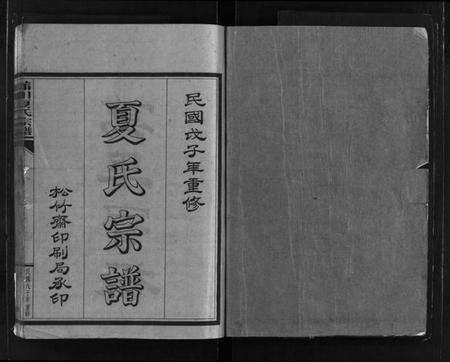 民國戊子年重修
夏氏宗譜
松竹齋印刷局承印
夏氏宗譜